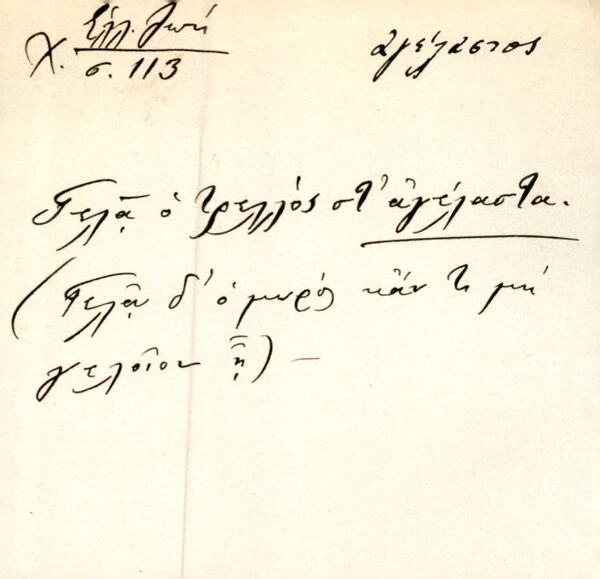 Χ. Ἑλλ. Ζωή
σ. 113
ἀγέλαστος
Γελᾷ ὁ τρελλὸς στ' ἀγέλαστα.
(Γελᾷ δ' ὁ μωρός κἄν τι μὴ
γελοῖον ᾖ) —